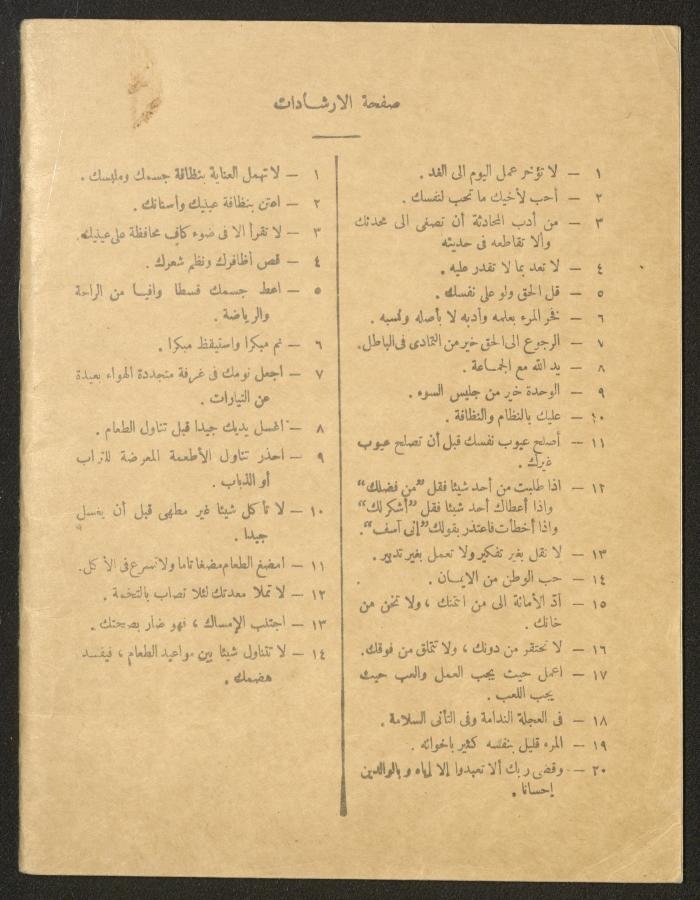 صفحة الارشادات
١ – لا تؤخر عمل اليوم الى الغد .
٢ – أحب لأخيك ما تحب لنفسك .
٣ – من أدب المحادثة أن تصغى الى محدثك
وألا تقاطعه فى حديثه
٤ – لا تعد بما لا تقدر عليه .
٥ – قل الحق ولو على نفسك .
٦ – فخر المرء بعلمه وأدبه لا بأصله ونسبه .
٧ – الرجوع الى الحق خير من التمادى فى الباطل .
٨ – يد الله مع الجماعة .
٩ – الوحدة خير من جليس السوء .
١٠ – عليك بالنظام والنظافة .
١١ – أصلح عيوب نفسك قبل أن تصلح عيوب
غيرك .
١٢ – اذا طلبت من أحد شيئا فقل "من فضلك"
واذا أعطاك أحد شيئا فقل "أشكر لك"
واذا أخطأت فاعتذر بقولك "إنى آسف" .
١٣ – لا تقل بغير تفكير ولا تعمل بغير تدبير .
١٤ – حب الوطن من الايمان .
١٥ – أدّ الأمانة الى من ائتمنك ، ولا تخن من
خانك .
١٦ – لا تحتقر من دونك ، ولا تتملق من فوقك .
١٧ – اعمل حيث يجب العمل والعب حيث
يجب اللعب .
١٨ – فى العجلة الندامة وفى التأنى السلامة .
١٩ – المرء قليل بنفسه كثير باخوانه .
٢٠ – وقضى ربك ألا تعبدوا إلا إياه وبالوالدين
إحسانا .
١ – لا تهمل العناية بنظافة جسمك وملبسك .
٢ – اعتن بنظافة عينيك وأسنانك .
٣ – لا تقرأ الا فى ضوء كاف محافظة على عينيك .
٤ – قص أظافرك ونظم شعرك .
٥ – اعط جسمك قسطا وافيا من الراحة
والرياضة .
٦ – نم مبكرا واستيقظ مبكرا .
٧ – اجعل نومك فى غرفة متجددة الهواء بعيدة
عن التيارات .
٨ – اغسل يديك جيدا قبل تناول الطعام .
٩ – احذر تناول الأطعمة المعرضة للتراب
أو الذباب .
١٠ – لا تأكل شيئا غير مطهى قبل أن يغسل
جيدا .
١١ – امضغ الطعام مضغا تاما ولا تسرع فى الأكل .
١٢ – لا تملأ معدتك لئلا تصاب بالتخمة .
١٣ – اجتنب الإمساك ، فهو ضار بصحتك .
١٤ – لا تتناول شيئا بين مواعيد الطعام ، فيفسد
هضمك .